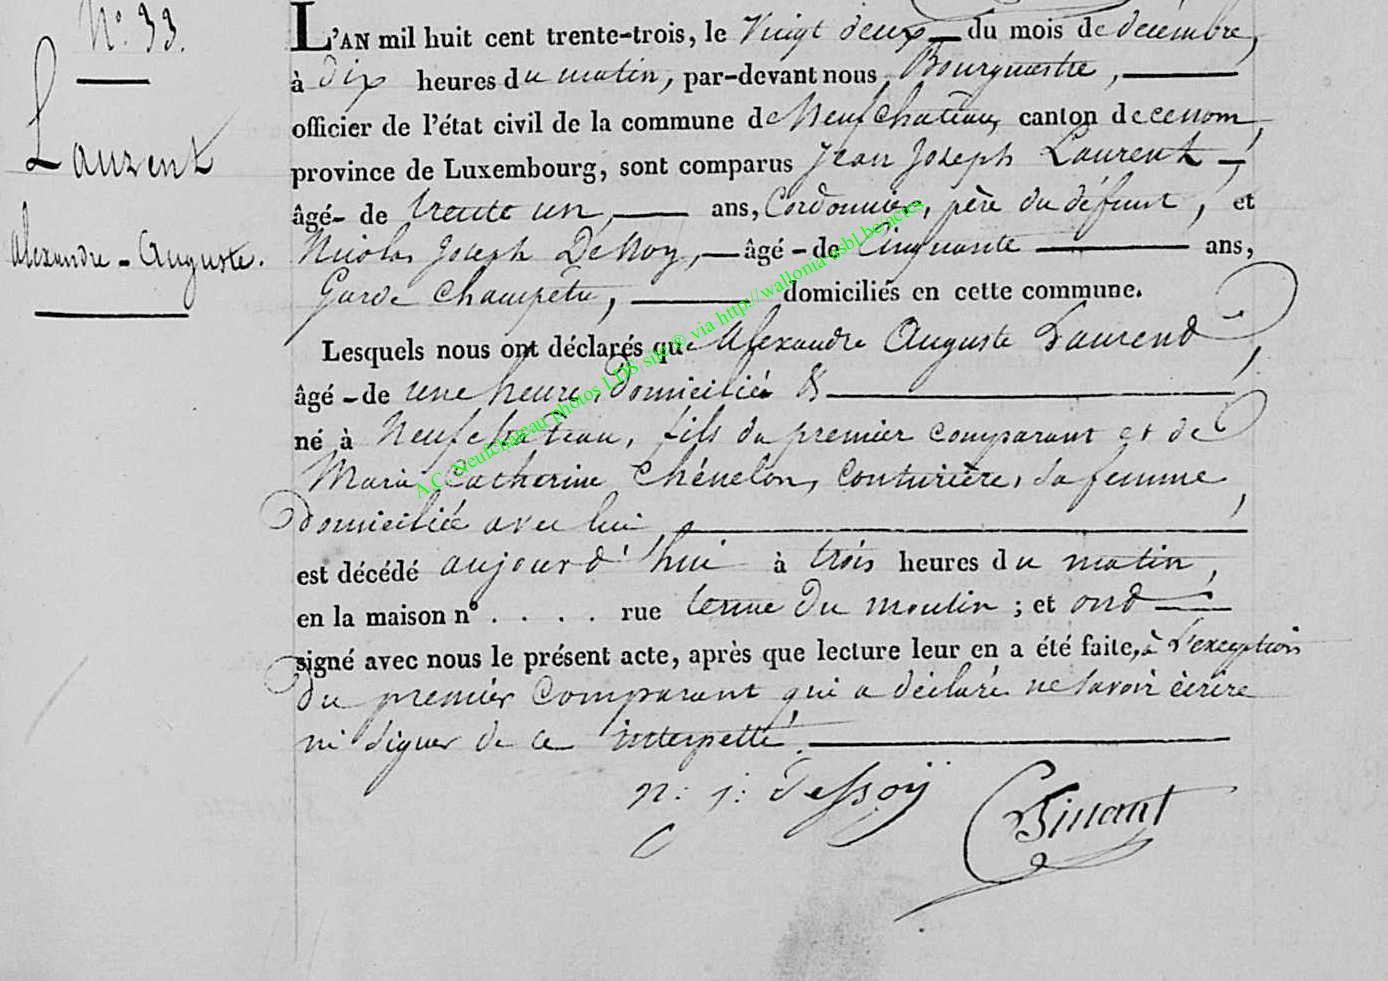 N.° 33.
Laurent
Alexandre - Auguste.
L'AN mil huit cent trente-trois, le Vingt deux du mois de décembre,
à dix heures du matin, par-devant nous Bourgmestre,
officier de l'état civil de la commune de Neufchateau, canton de ce nom,
province de Luxembourg, sont comparus Jean Joseph Laurent
âgé de trente un, ans, Cordonnier, père du défunt, et
Nicolas Joseph Dessoy, âgé de Cinquante ans,
Garde Champêtre, domiciliés en cette commune.
Lesquels nous ont déclarés que Alexandre Auguste Laurend,
âgé de une heure, domicilié &
né à Neufchateau, fils du premier comparant et de
Marie Catherine Chénelon, Couturière, sa femme,
domiciliée avec lui
est décédé aujourd'hui à trois heures du matin,
en la maison n° . . . . rue terme du moulin ; et ond
signé avec nous le présent acte, après que lecture leur en a été faite, à l'exception
du premier Comparant qui a déclaré ne savoir écrire
ni signer de ce interpellé.
n: j: Dessoÿ
Dinant
A.C. Neufchateau photos LDS site © via http://wallonia-asbl.be/actes